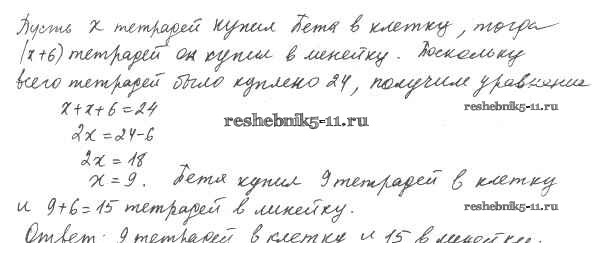 Пусть x тетрадей купил Петя в клетку, тогда
(x+6) тетрадей он купил в линейку. Поскольку
всего тетрадей было куплено 24, получим уравнение
x+x+6=24
reshebnik5-11.ru
2x=24-6
reshebnik5-11.ru
2x=18
x=9. Петя купил 9 тетрадей в клетку
и 9+6=15 тетрадей в линейку.
reshebnik5-11.ru
Ответ: 9 тетрадей в клетку и 15 в линейку.